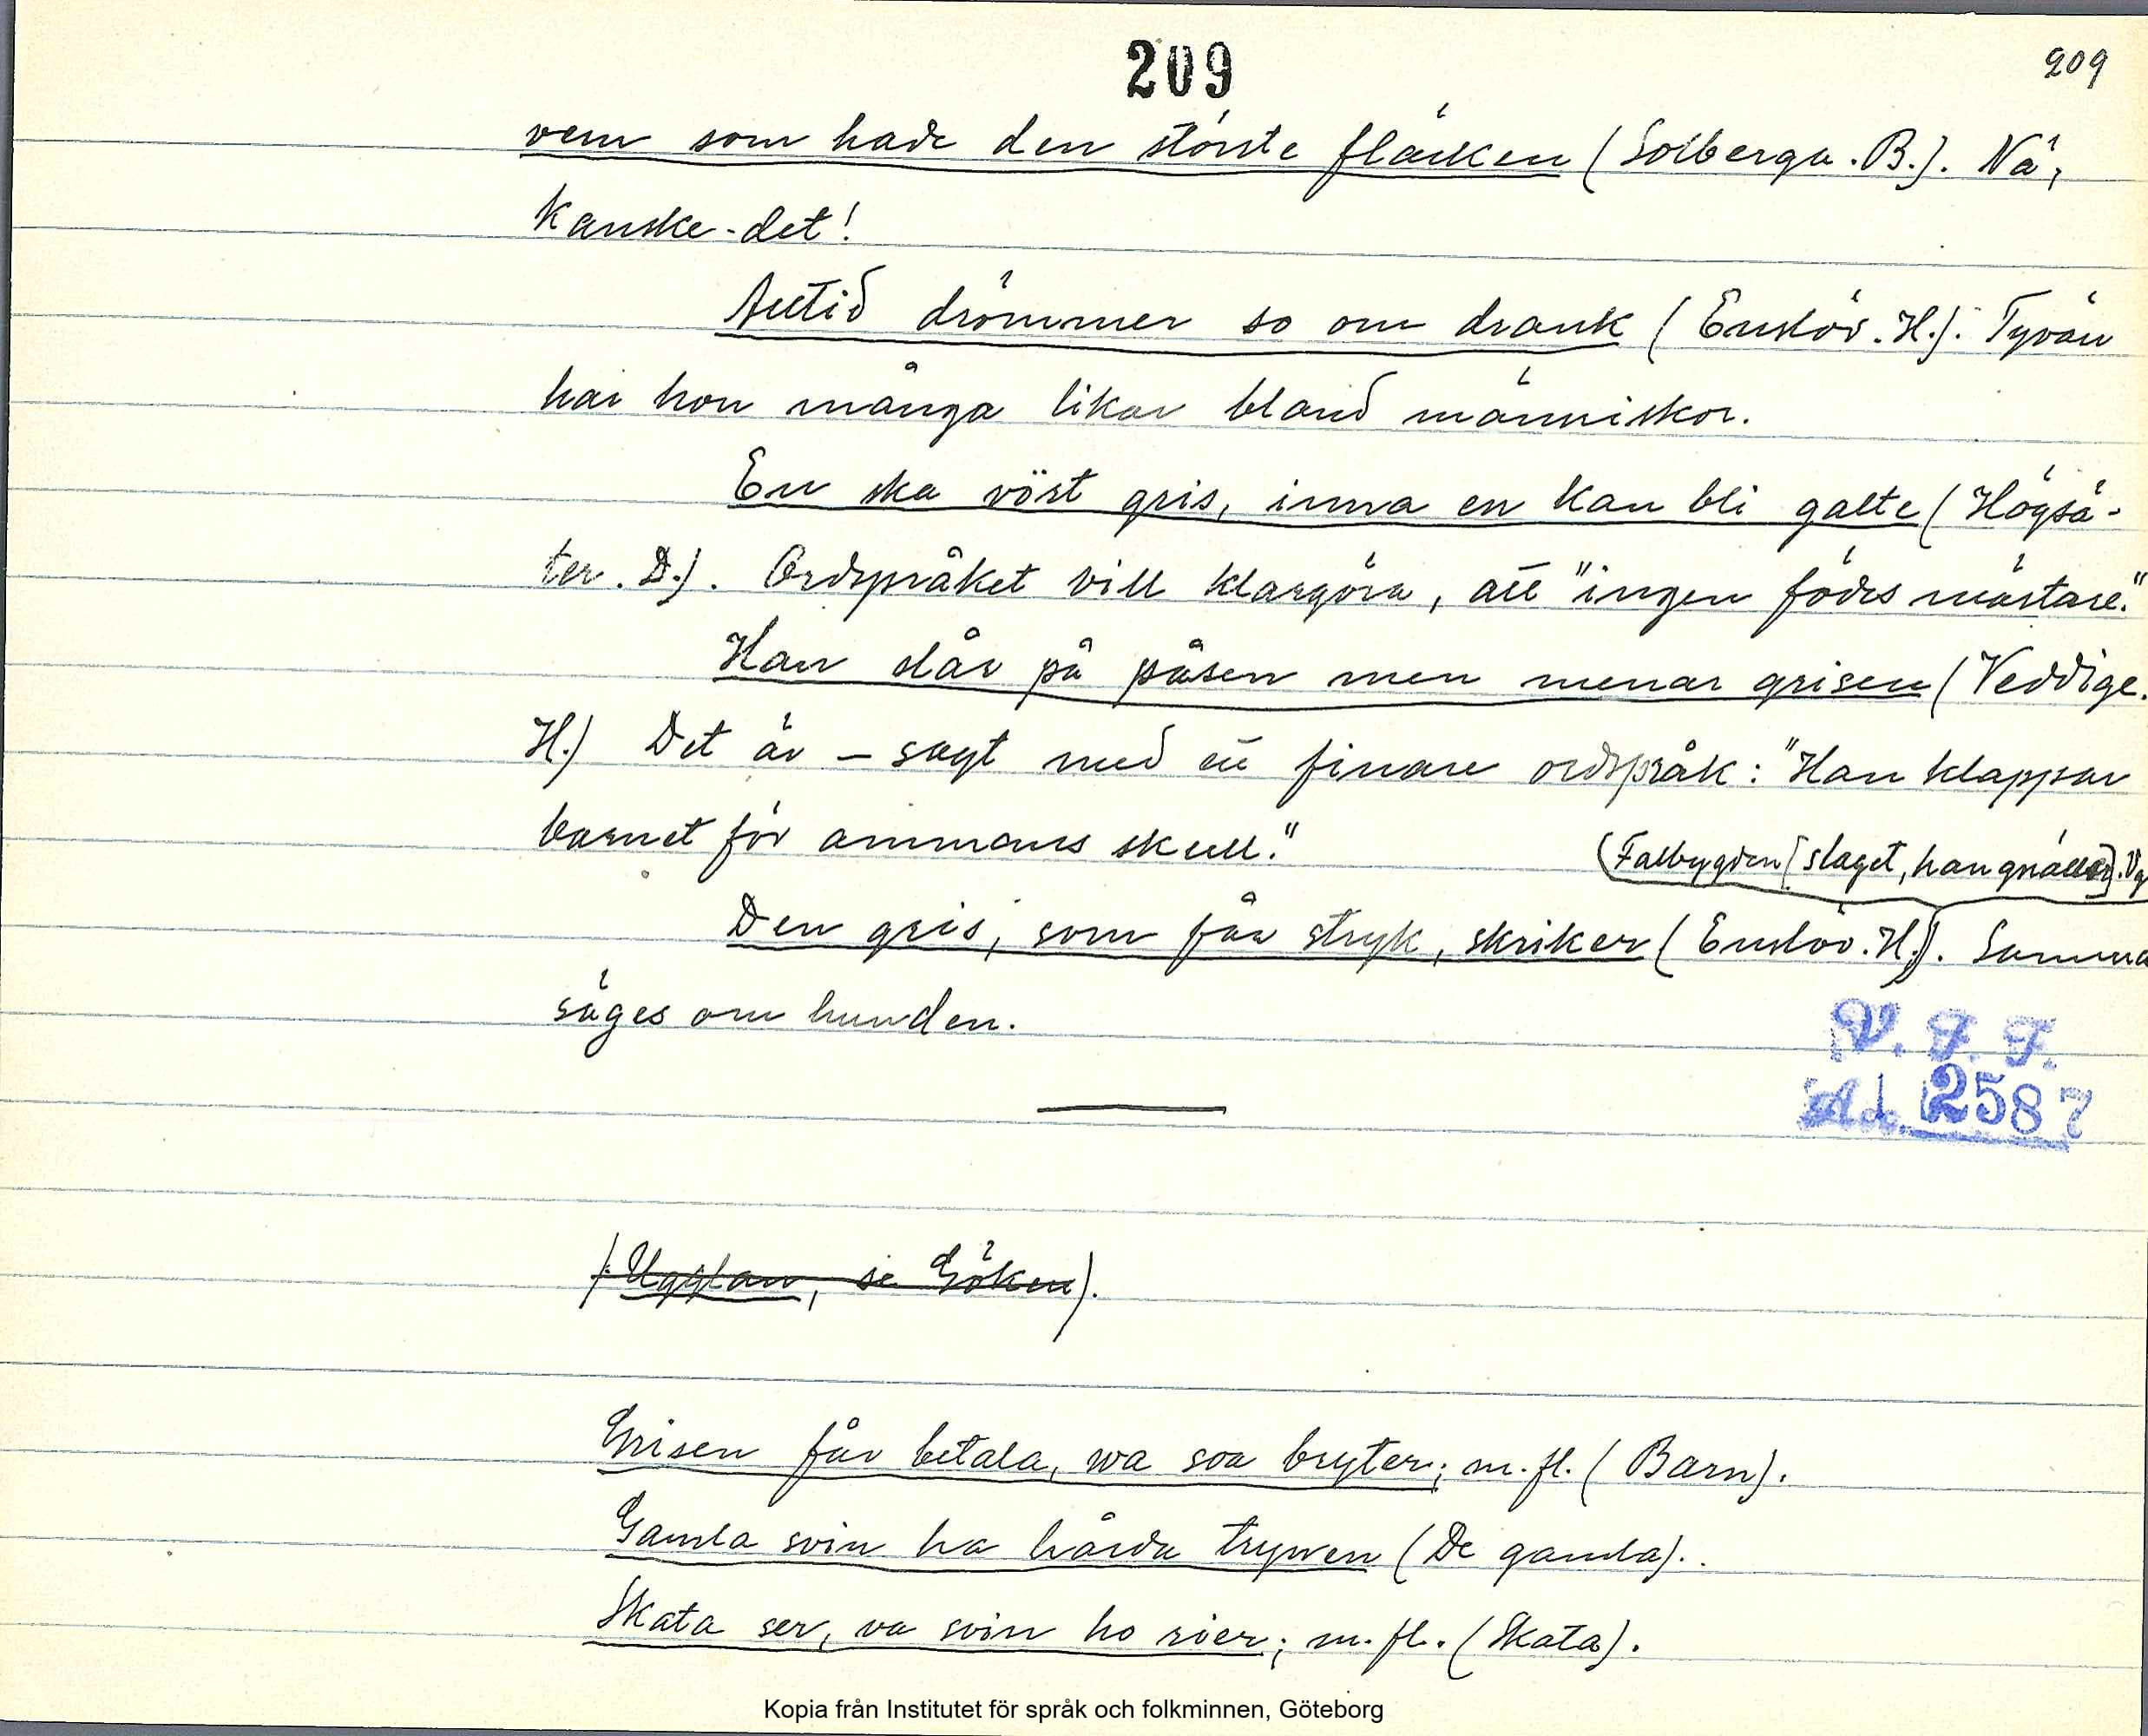 209
209
vem som hade den störste fläcken (Solberga. B.). Nå,
kanske-det!
Alltid drömmer so om drank (Enslöv. H.). Tyvärr
har hon många likar bland människor.
En ska vört gris, inna en kan bli galte (Högsä-
ter. D.). Ordspråket vill klargöra, att "ingen födes mästare."
Han slår på påsen men menar grisen (Veddige.
H.) Det är – sagt med ett finare ordspråk: "Han klappar
barnet för ammans skull."
(Falbygden [slaget, han gnäller]. Vg
Den gris, som får stryk, skriker (Enslöv. H.)). Samma
säges om hunden.
V. F. F.
Acc. 2587
(Ugglan, se Göken).
Grisen får betala, va soa bryter; m.fl. (Barn).
Gamla svin ha hårda trynen (De gamla).
Skata ser, va svin ho rier; m.fl. (Skata).
Kopia från Institutet för språk och folkminnen, Göteborg